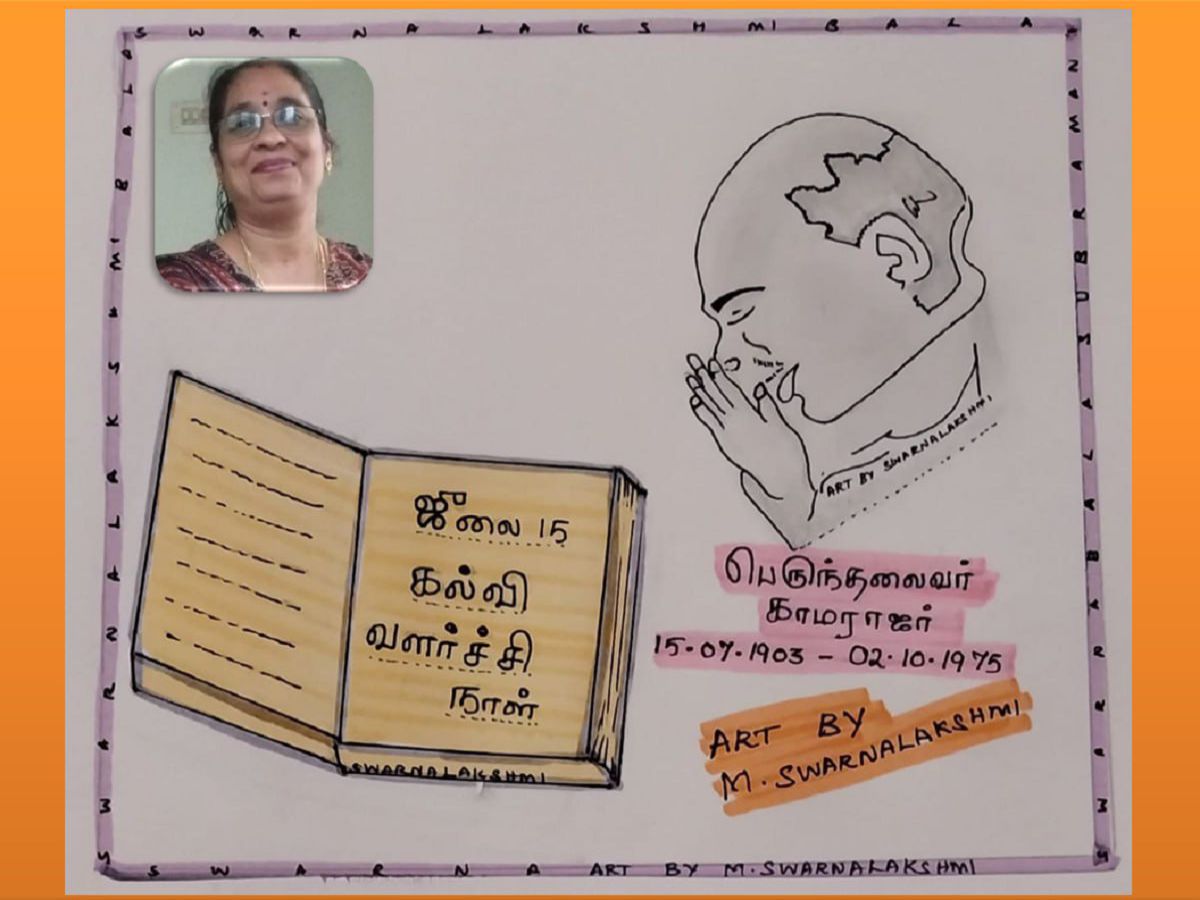 S W A R N A L A K S H M I B A L A
S U B R A M A N
ART BY SWARNALAKSHMI
ஜீலை 15
கல்வி
வளர்ச்சி
நாள்
SWARNALAKSHMI
பெருந்தலைவர்
காமராஜர்
15-07-1903 - 02.10.1975
ART BY
M. SWARNALAKSHMI
S W A R N A ART BY M.SWARNALAKSHMI
S W A R N A L A K S H M I B A L A